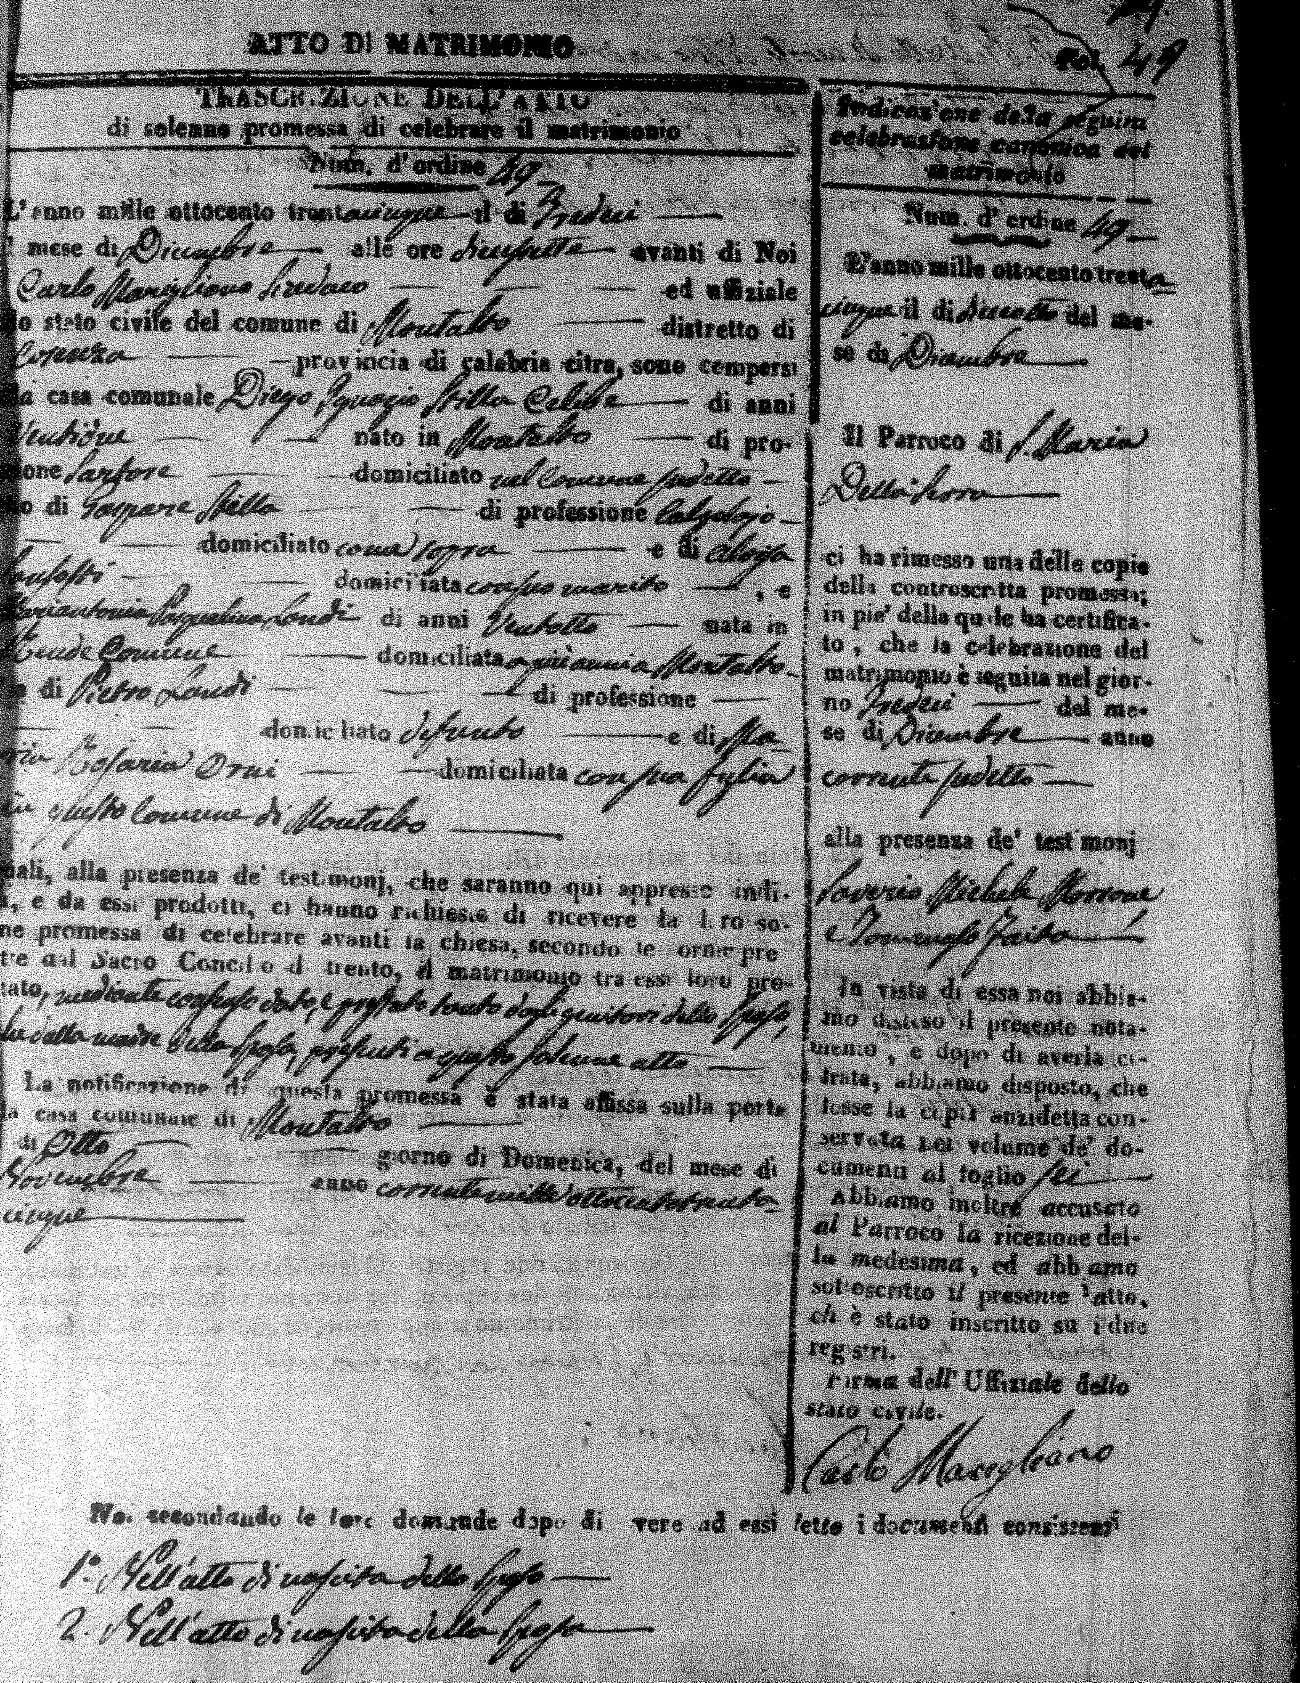 ATTO DI MATRIMONIO
Fol. 49
TRASCRIZIONE DELL'ATTO
di solenne promessa di celebrare il matrimonio
Num. d'ordine 49
L'anno mille ottocento trentacinque il di Tredeci
mese di Dicembre alle ore diecisette avanti di Noi
Carlo Marigliano Sindaco ed uffiziale
lo stato civile del comune di Montalto distretto di
Cosenza provincia di calabria citra, sono compersi
la casa comunale Diego Ignazio Stilla Celibe di anni
nato in Montalto di pro-
sione Sartore domiciliato nel Comune sudetto
io di Gaspare Stilla di professione Calzolajo
domiciliato come sopra e di Aloisa
domiciliata con suo marito , e
Mariantonia Pasqualina Londi di anni Ventotto nata in
Rende Comune domiciliata a più anni a Montalto
a di Pietro Londi di professione
domiciliato defunto e di Ma
ria Rosaria Orni domiciliata con sua figlia
in questo Comune di Montalto
uali, alla presenza de' testimonj, che saranno qui appresso indi-
i, e da essi prodotti, ci hanno richiesto di ricevere la loro so-
ne promessa di celebrare avanti la chiesa, secondo le forme pre
tte dal Sacro Concilio di trento, il matrimonio tra essi loro pro-
tato, mediante consenso dato, e prestato tanto dagli genitori dello Sposo,
che dalla madre della Sposa, presenti a questo solenne atto
La notificazione di questa promessa è stata affissa sulla porta
la casa comunale di Montalto
di Otto giorno di Domenica, del mese di
Novembre anno corrente mille ottocentotrenta-
cinque
Indicazione della seguita
celebrazione canonica del
matrimonio
Num. d'ordine 49
L'anno mille ottocento trenta
cinque il di diecotto del me-
se di Dicembre
Il Parroco di S. Maria
Della Serra
ci ha rimesso una delle copie
della controscritta promessa;
in pie' della quale ha certifica-
to, che la celebrazione del
matrimonio è seguita nel gior-
no Tredeci del me-
se di Dicembre anno
corrente sudetto
alla presenza de' testimonj
Saverio Michele Morrone
e Tommaso Faita
In vista di essa noi abbia-
mo disteso il presente nota-
mento, e dopo di averla ci-
frata, abbiamo disposto, che
fosse la copia anzidetta con-
servata nel volume de' do-
cumenti al foglio sei
Abbiamo inoltre accusato
al Parroco la ricezione del-
la medesima, ed abbiamo
sottoscritto il presente atto,
ch è stato inscritto su i due
registri.
Firma dell'Uffiziale dello
stato civile.
Carlo Marigliano
No. secondando le loro domande dopo di vere ad essi letto i documenti consistenti
1.° Nell'atto di nascita dello Sposo
2. Nell'atto di nascita della Sposa